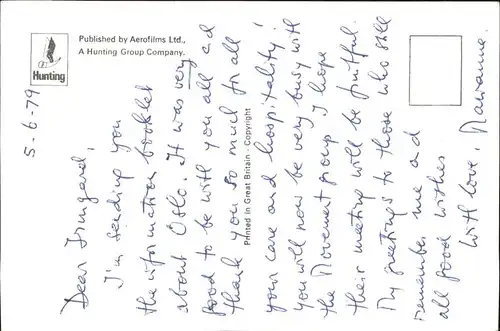 Published by Aerofilms Ltd.,
A Hunting Group Company.
Hunting
Printed in Great Britain - Copyright
5-6-79
Dear Irmgard,
I'm sending you
the information booklet
about Oslo. It was very
good to be with you all and
thank you so much for all
your care and hospitality!
You will now be very busy with
the Movement group. I hope
their meeting will be fruitful.
My greetings to those who still
remember me and
all good wishes
with love,